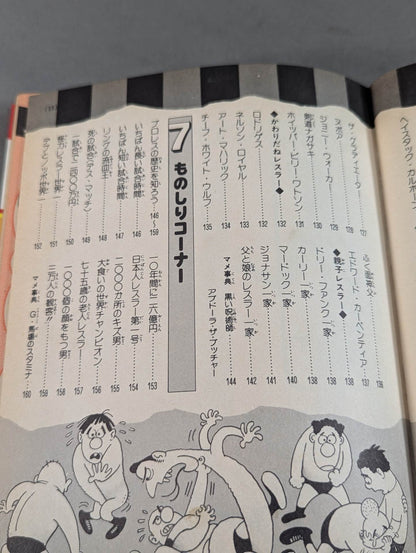 ヘイスタック・カルホーン
ザ・グラディエーター 127
ヌボア 128
ジョニー・ウォーカー 129
剣道ナガサキ 130
ホイッパー・ビリー・ワトソン 131
◆かわりだねレスラー◆ 132
ロドリゲス 132
ネルソン・ロイヤル 133
アート・マハリック 134
チーフ・ホワイト・ウルフ 135
136
エドワード・カーペンティア 137
◆親子レスラー◆ 138
ドリー・ファンク一家 138
カーリー一家 138
マードック一家 140
ジョナサン一家 141
父と娘のレスラー一家 142
マメ事典 黒い呪術師
アブドーラ・ザ・ブッチャー 144
7 ものしりコーナー
プロレスの歴史を知ろう 146〜159
いちばん長い試合時間 146
いちばん短い試合時間 147
リングの流血王 148
死の試合デス・マッチ 149
一試合に二四〇〇万円 150
怪力レスラー世界一 151
152
一〇年間に二六億円 153
日本人レスラー第一号 154
二〇〇〇か所のキズ男 155
大食いの世界チャンピオン 156
七十五歳の老人レスラー 157
一〇〇〇個の顔をもつ男 158
三万人の観客 159
マメ事典 G・馬場のスタミナ 160